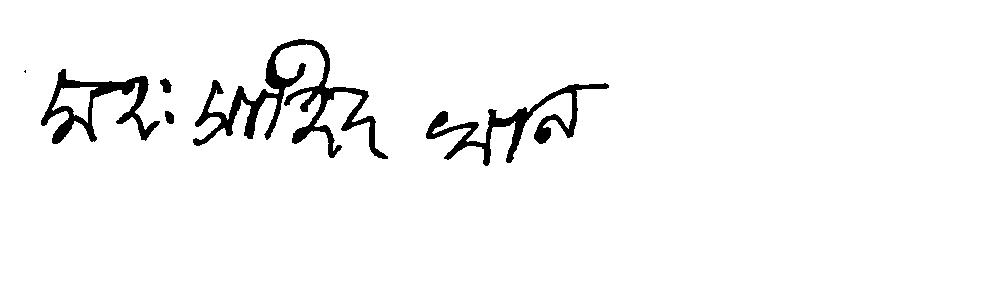 মোঃ সাহিদ খান